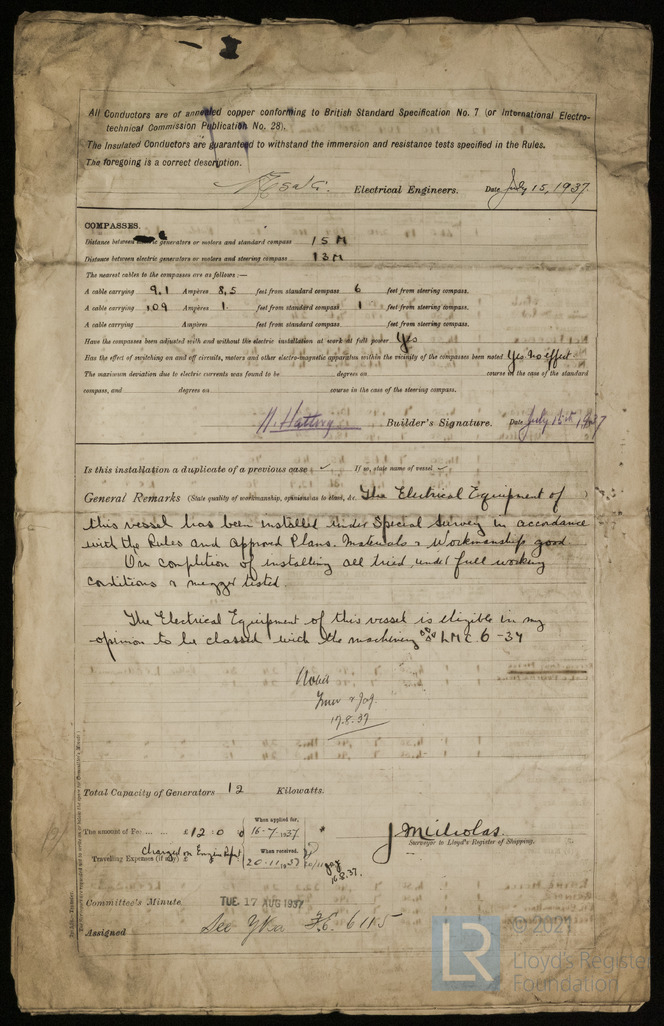 All Conductors are of annealed copper conforming to British Standard Specification No. 7 (or International Electro-
technical Commission Publication No. 28).
The Insulated Conductors are guaranteed to withstand the immersion and resistance tests specified in the Rules.
The foregoing is a correct description.
Electrical Engineers. Date July 15, 1937
COMPASSES.
Distance between electric generators or motors and standard compass 15 M
Distance between electric generators or motors and steering compass 13 M
The nearest cables to the compasses are as follows:—
A cable carrying 9.1 Ampères 8,5 feet from standard compass 6 feet from steering compass.
A cable carrying .109 Ampères 1 feet from standard compass 1 feet from steering compass.
A cable carrying Ampères feet from standard compass feet from steering compass.
Have the compasses been adjusted with and without the electric installation at work at full power Yes
Has the effect of switching on and off circuits, motors and other electro-magnetic apparatus within the vicinity of the compasses been noted Yes no effect
The maximum deviation due to electric currents was found to be degrees on course in the case of the standard
compass, and degrees on course in the case of the steering compass.
Builder's Signature. Date July 15th, 1937
Is this installation a duplicate of a previous case ✓ If so, state name of vessel ✓
General Remarks (State quality of workmanship, opinions as to class, &c. The Electrical Equipment of
this vessel has been installed under Special Survey in accordance
with the Rules and Approved Plans. Materials & Workmanship good
On completion of installing all tried under full working
conditions & megger tested.
The Electrical Equipment of this vessel is eligible in my
opinion to be classed with the machinery LMC 6-37
Noted
17.8.37
Total Capacity of Generators 12 Kilowatts.
The amount of Fee ... ... £ 12 : 0 : 0 When applied for, 16-7-1937
Charged on Engine Report
Travelling Expenses (if any) £ When received, 20.11.1937
16.8.37.
J Nicholas.
Surveyor to Lloyd's Register of Shipping.
Committee's Minute TUE 17 AUG 1937
Assigned See F.E. 6115
LR
© 2021
Lloyd's Register
Foundation